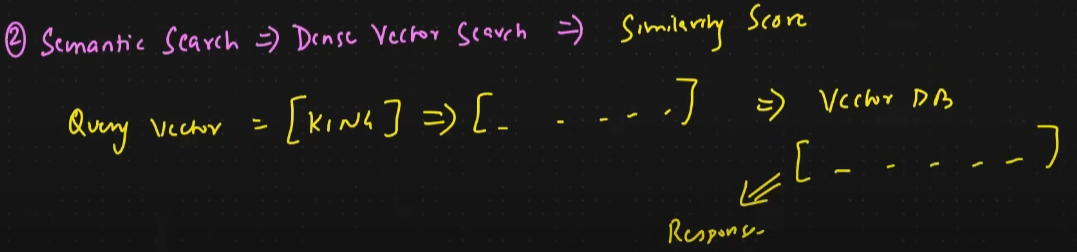 ② Semantic Search ⇒ Dense Vector Search ⇒ Similarity Score
Query Vector = [KING] ⇒ [- - - - - .] ⇒ Vector DB
[- - - - - -]
Response